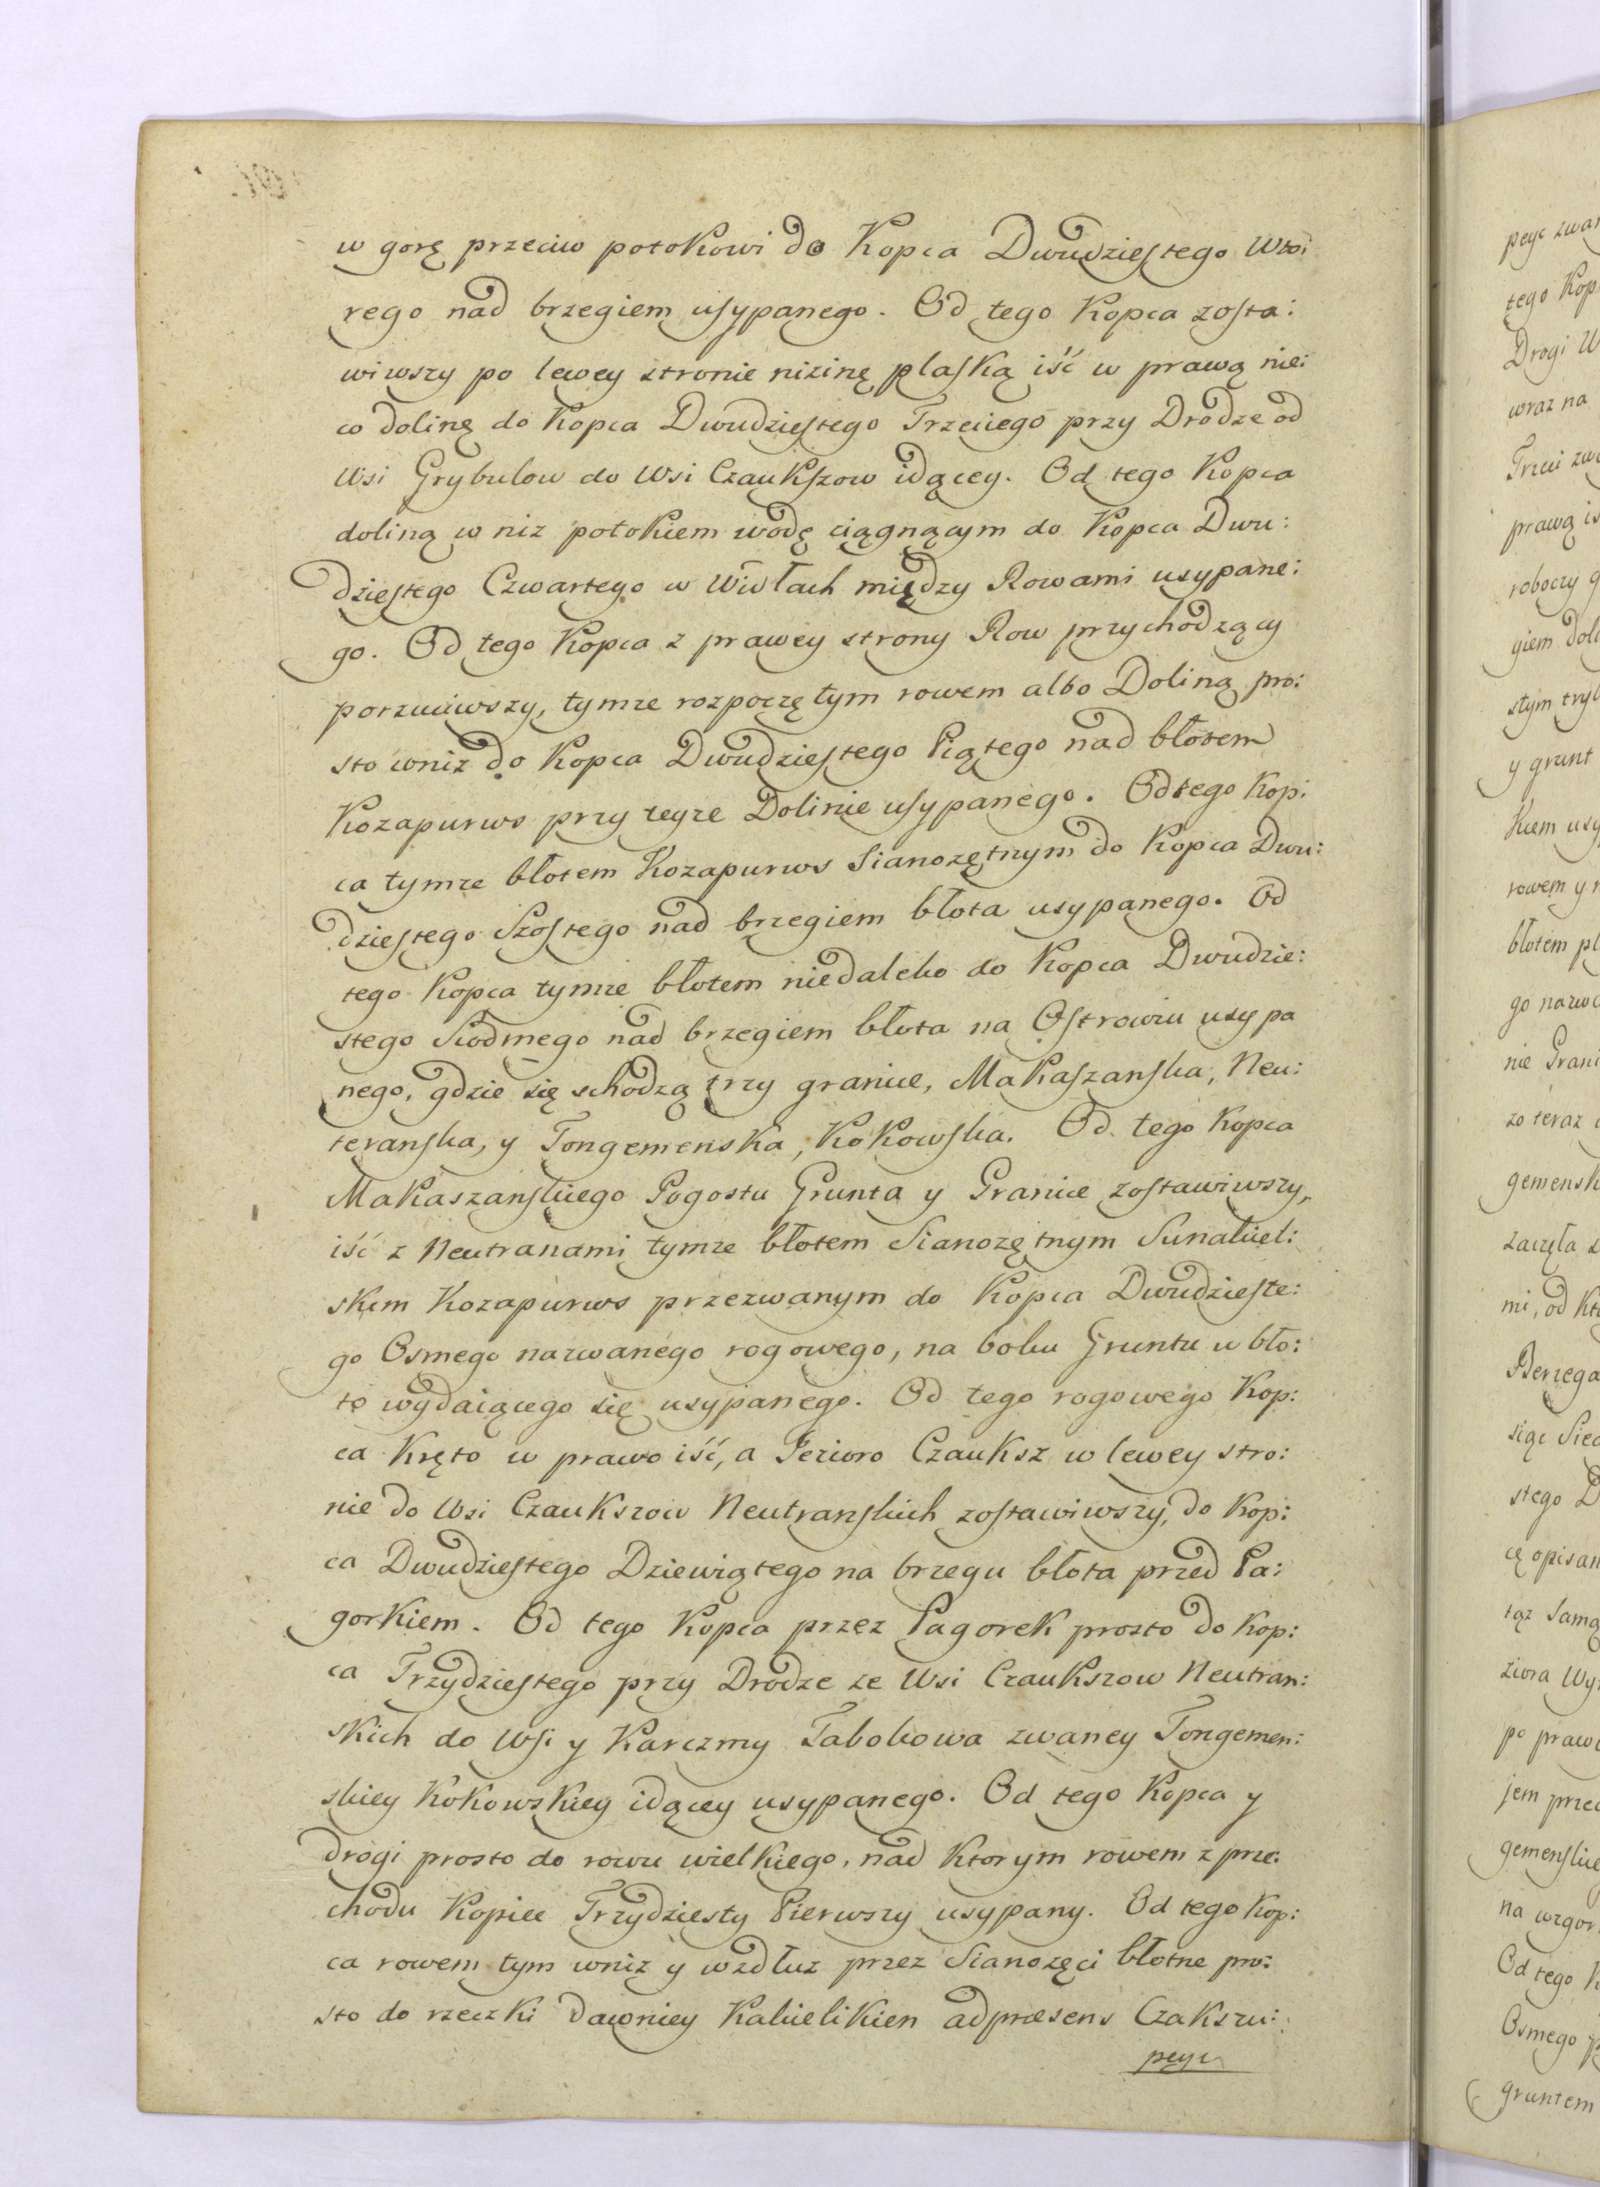 w gorę przeciw potokowi do Kopca Dwudziestego Wto:
rego nad brzegiem usypanego. Od tego Kopca zosta:
wiwszy po lewey stronie nizinę plaską iść w prawą nie:
co dolinę do Kopca Dwudziestego Trzeciego przy Drodze od
Wsi Grybulow do Wsi Czaukszow idącey. Od tego Kopca
doliną w niz potokiem wodę ciągnącym do Kopca Dwu:
dziestego Czwartego w Widłach między Rowami usypane:
go. Od tego Kopca z prawey strony Row przychodzący
porzuciwszy, tymze rozpoczętym rowem albo Doliną pro:
sto wniz do Kopca Dwudziestego Piątego nad błotem
Kozapurws przy teyze Dolinie usypanego. Od tego Kop:
ca tymze błotem Kozapurws Sianozętnym do Kopca Dwu:
dziestego Szostego nad brzegiem błota usypanego. Od
tego Kopca tymze błotem niedaleko do Kopca Dwudzie:
stego Siodmego nad brzegiem błota na Ostrowiu usypa
nego, gdzie się schodzą trzy granice, Makaszanska, Neu:
teranska, y Tongemenska, Kokowska. Od tego Kopca
Makaszanskiego Pogostu Grunta y Granice zostawiwszy,
iść z Neutranami tymze błotem Sianozętnym Sunakiel:
skim Kozapurws przezwanym do Kopca Dwudzieste:
go Osmego nazwanego rogowego, na boku Gruntu w bło:
to wydaiącego się usypanego. Od tego rogowego Kop:
ca Kręto w prawo iść, a Jezioro Czauksz w lewey stro:
nie do Wsi Czaukszow Neutranskich zostawiwszy, do Kop:
ca Dwudziestego Dziewiątego na brzegu błota przed Pa:
gorkiem. Od tego Kopca przez Pagorek prosto do Kop:
ca Trzydziestego przy Drodze ze Wsi Czaukszow Neutran:
skich do Wsi y Karczmy Tabokowa zwaney Tongemen:
skiey Kokowskiey idącey usypanego. Od tego Kopca y
drogi prosto do rowu wielkiego, nad ktorym rowem z prze:
chodu Kopiec Trzydziesty Pierwszy usypany. Od tego Kop:
ca rowem tym wniz y wzdłuz przez Sianozęci błotne pro:
sto do rzeczki dawniey Kakielikien adpræsens Czakszu:
peyc